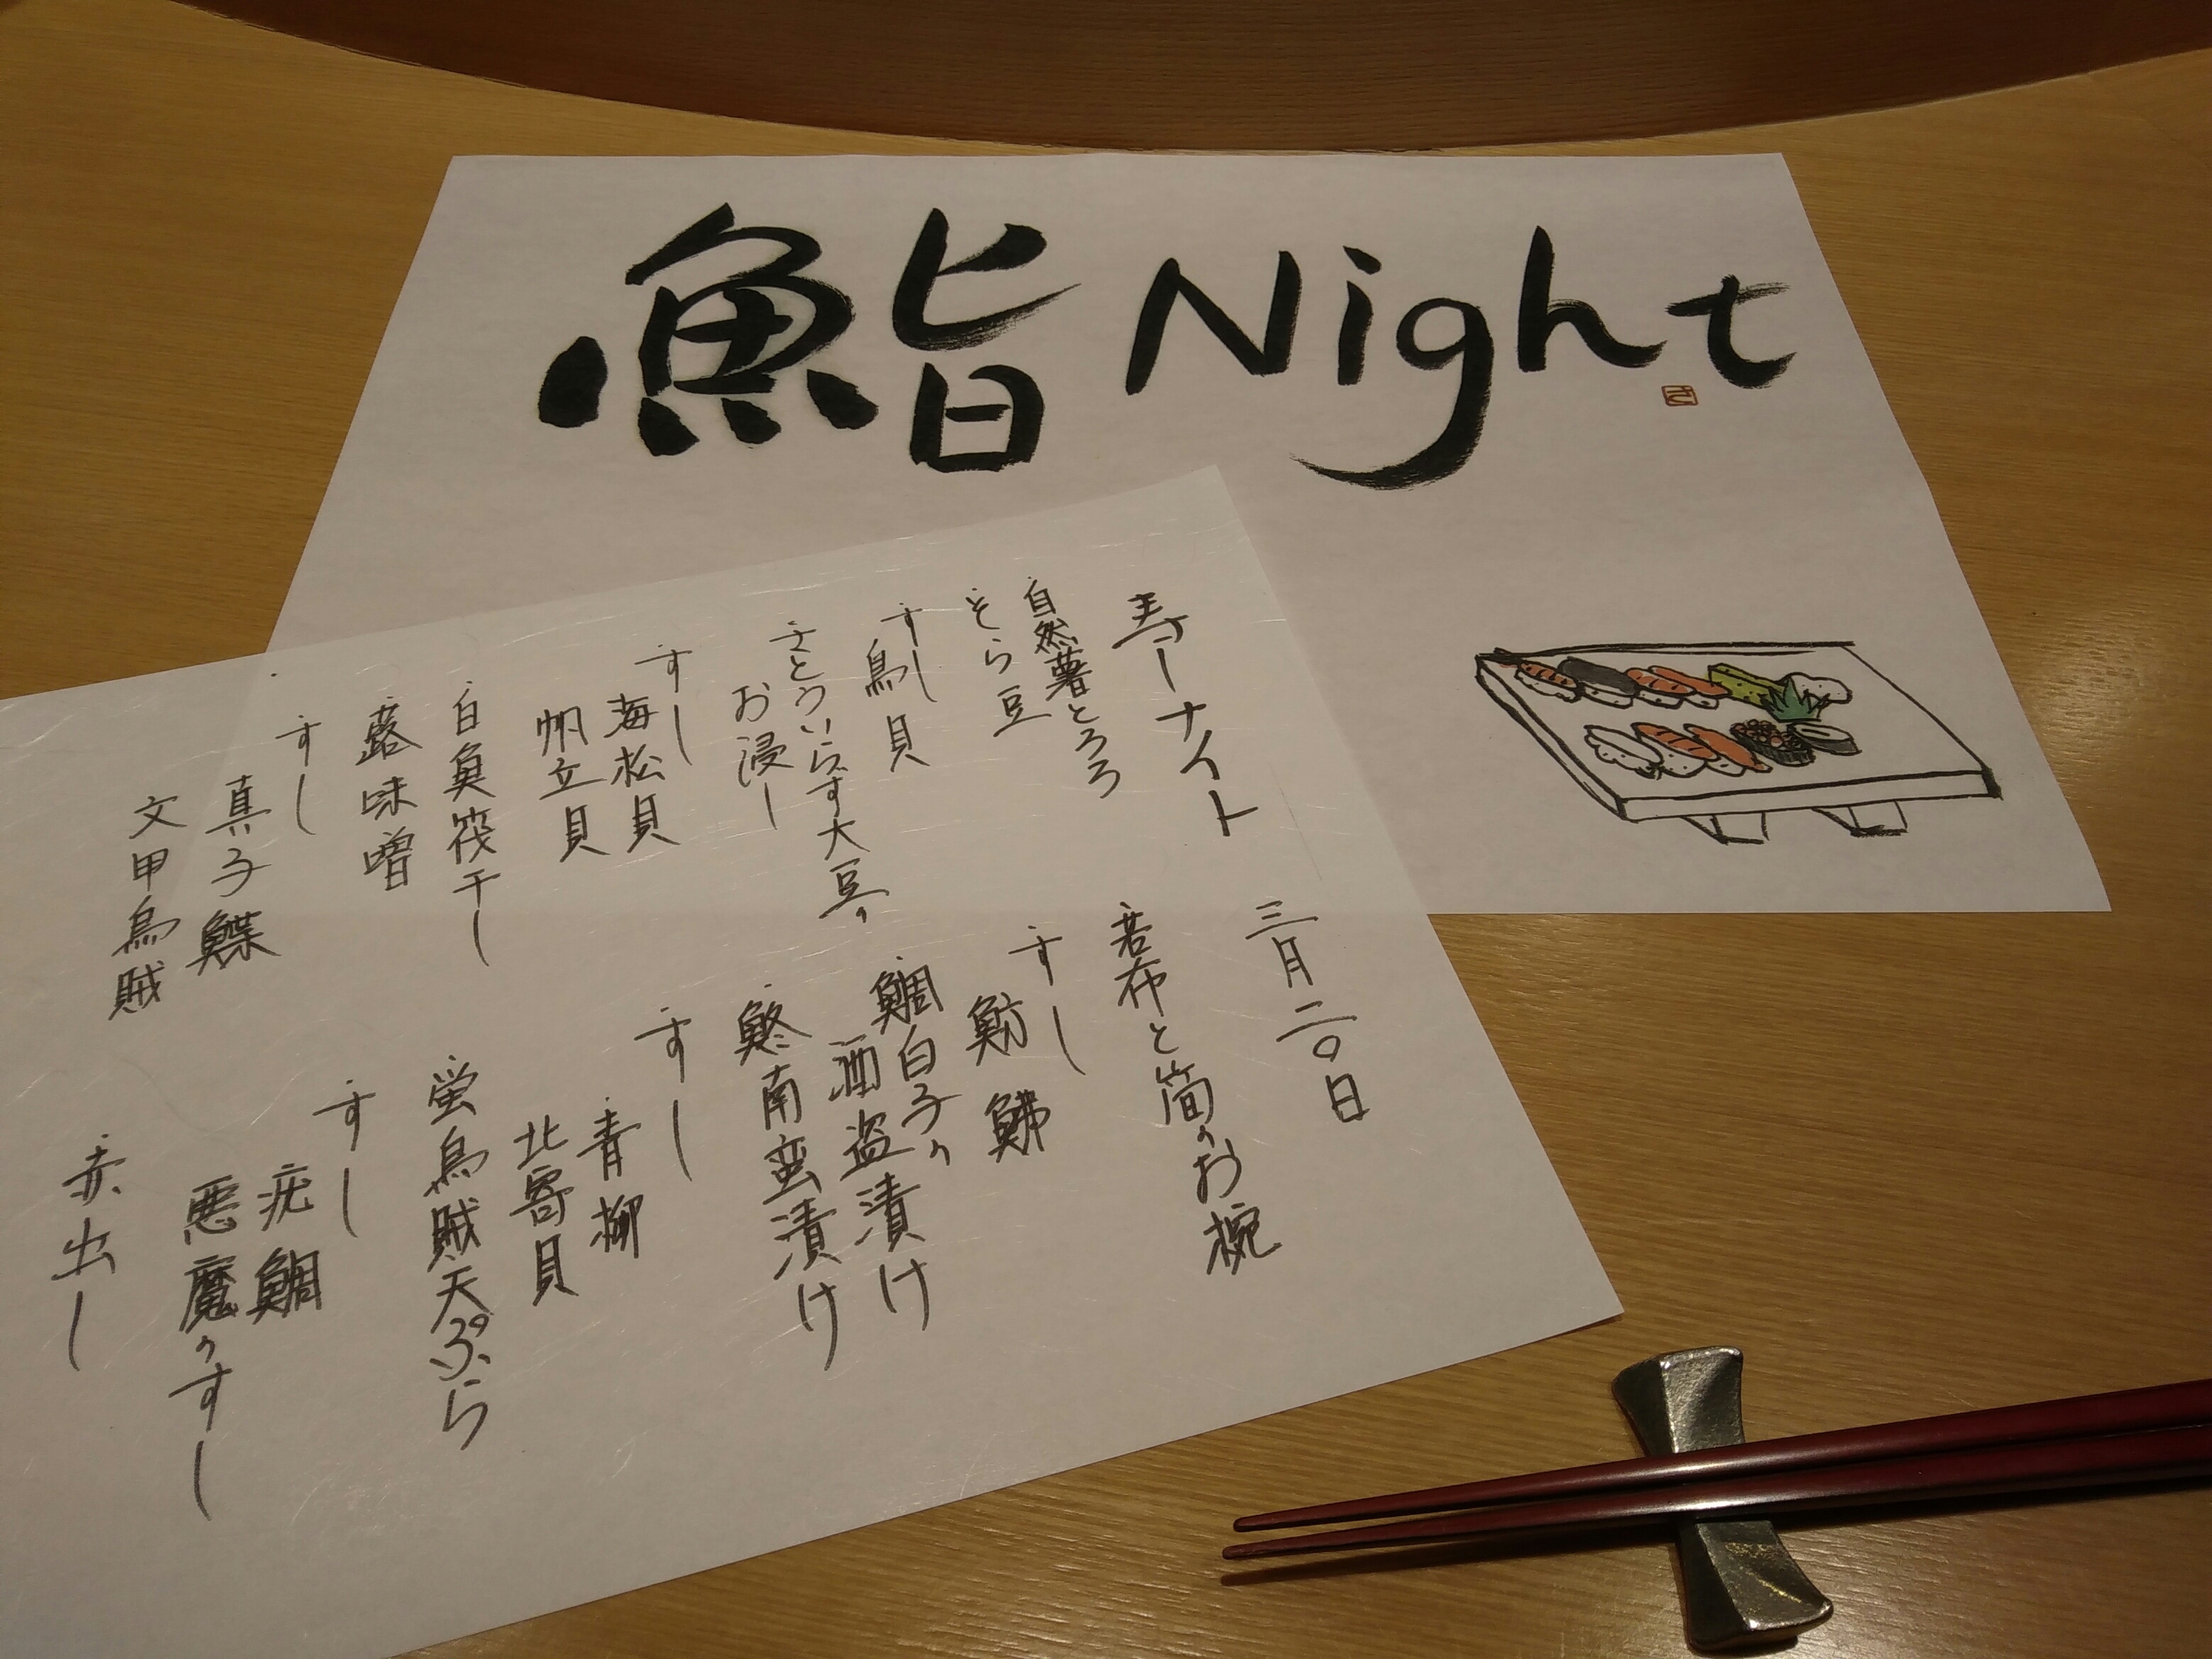 鮨Night
寿しナイト
三月二〇日
自然薯とろろ
そら豆
若布と筍のお椀
すし
鳥貝
すし
魴鮄
さとういらず大豆の
お浸し
鯛白子の
酒盗漬け
すし
海松貝
帆立貝
南蛮漬け
すし
青柳
北寄貝
白魚筏干し
蕗味噌
蛍烏賊天ぷら
すし
真子鰈
文甲烏賊
すし
疣鯛
悪魔のすし
赤出し